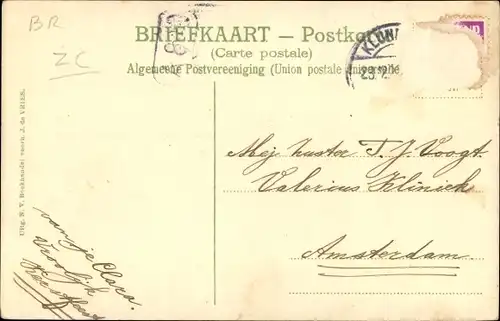 BR
ZC
BRIEFKAART — Postkar
(Carte postale)
Algemeene Postvereeniging (Union postale universelle)
KLUN
23.12.
Uitg. N. V. Boekhandel voorh. J. de VRIES.
Mej. zuster T. J. Voogt.
Valerius Kliniek
Amsterdam
van je Clara.